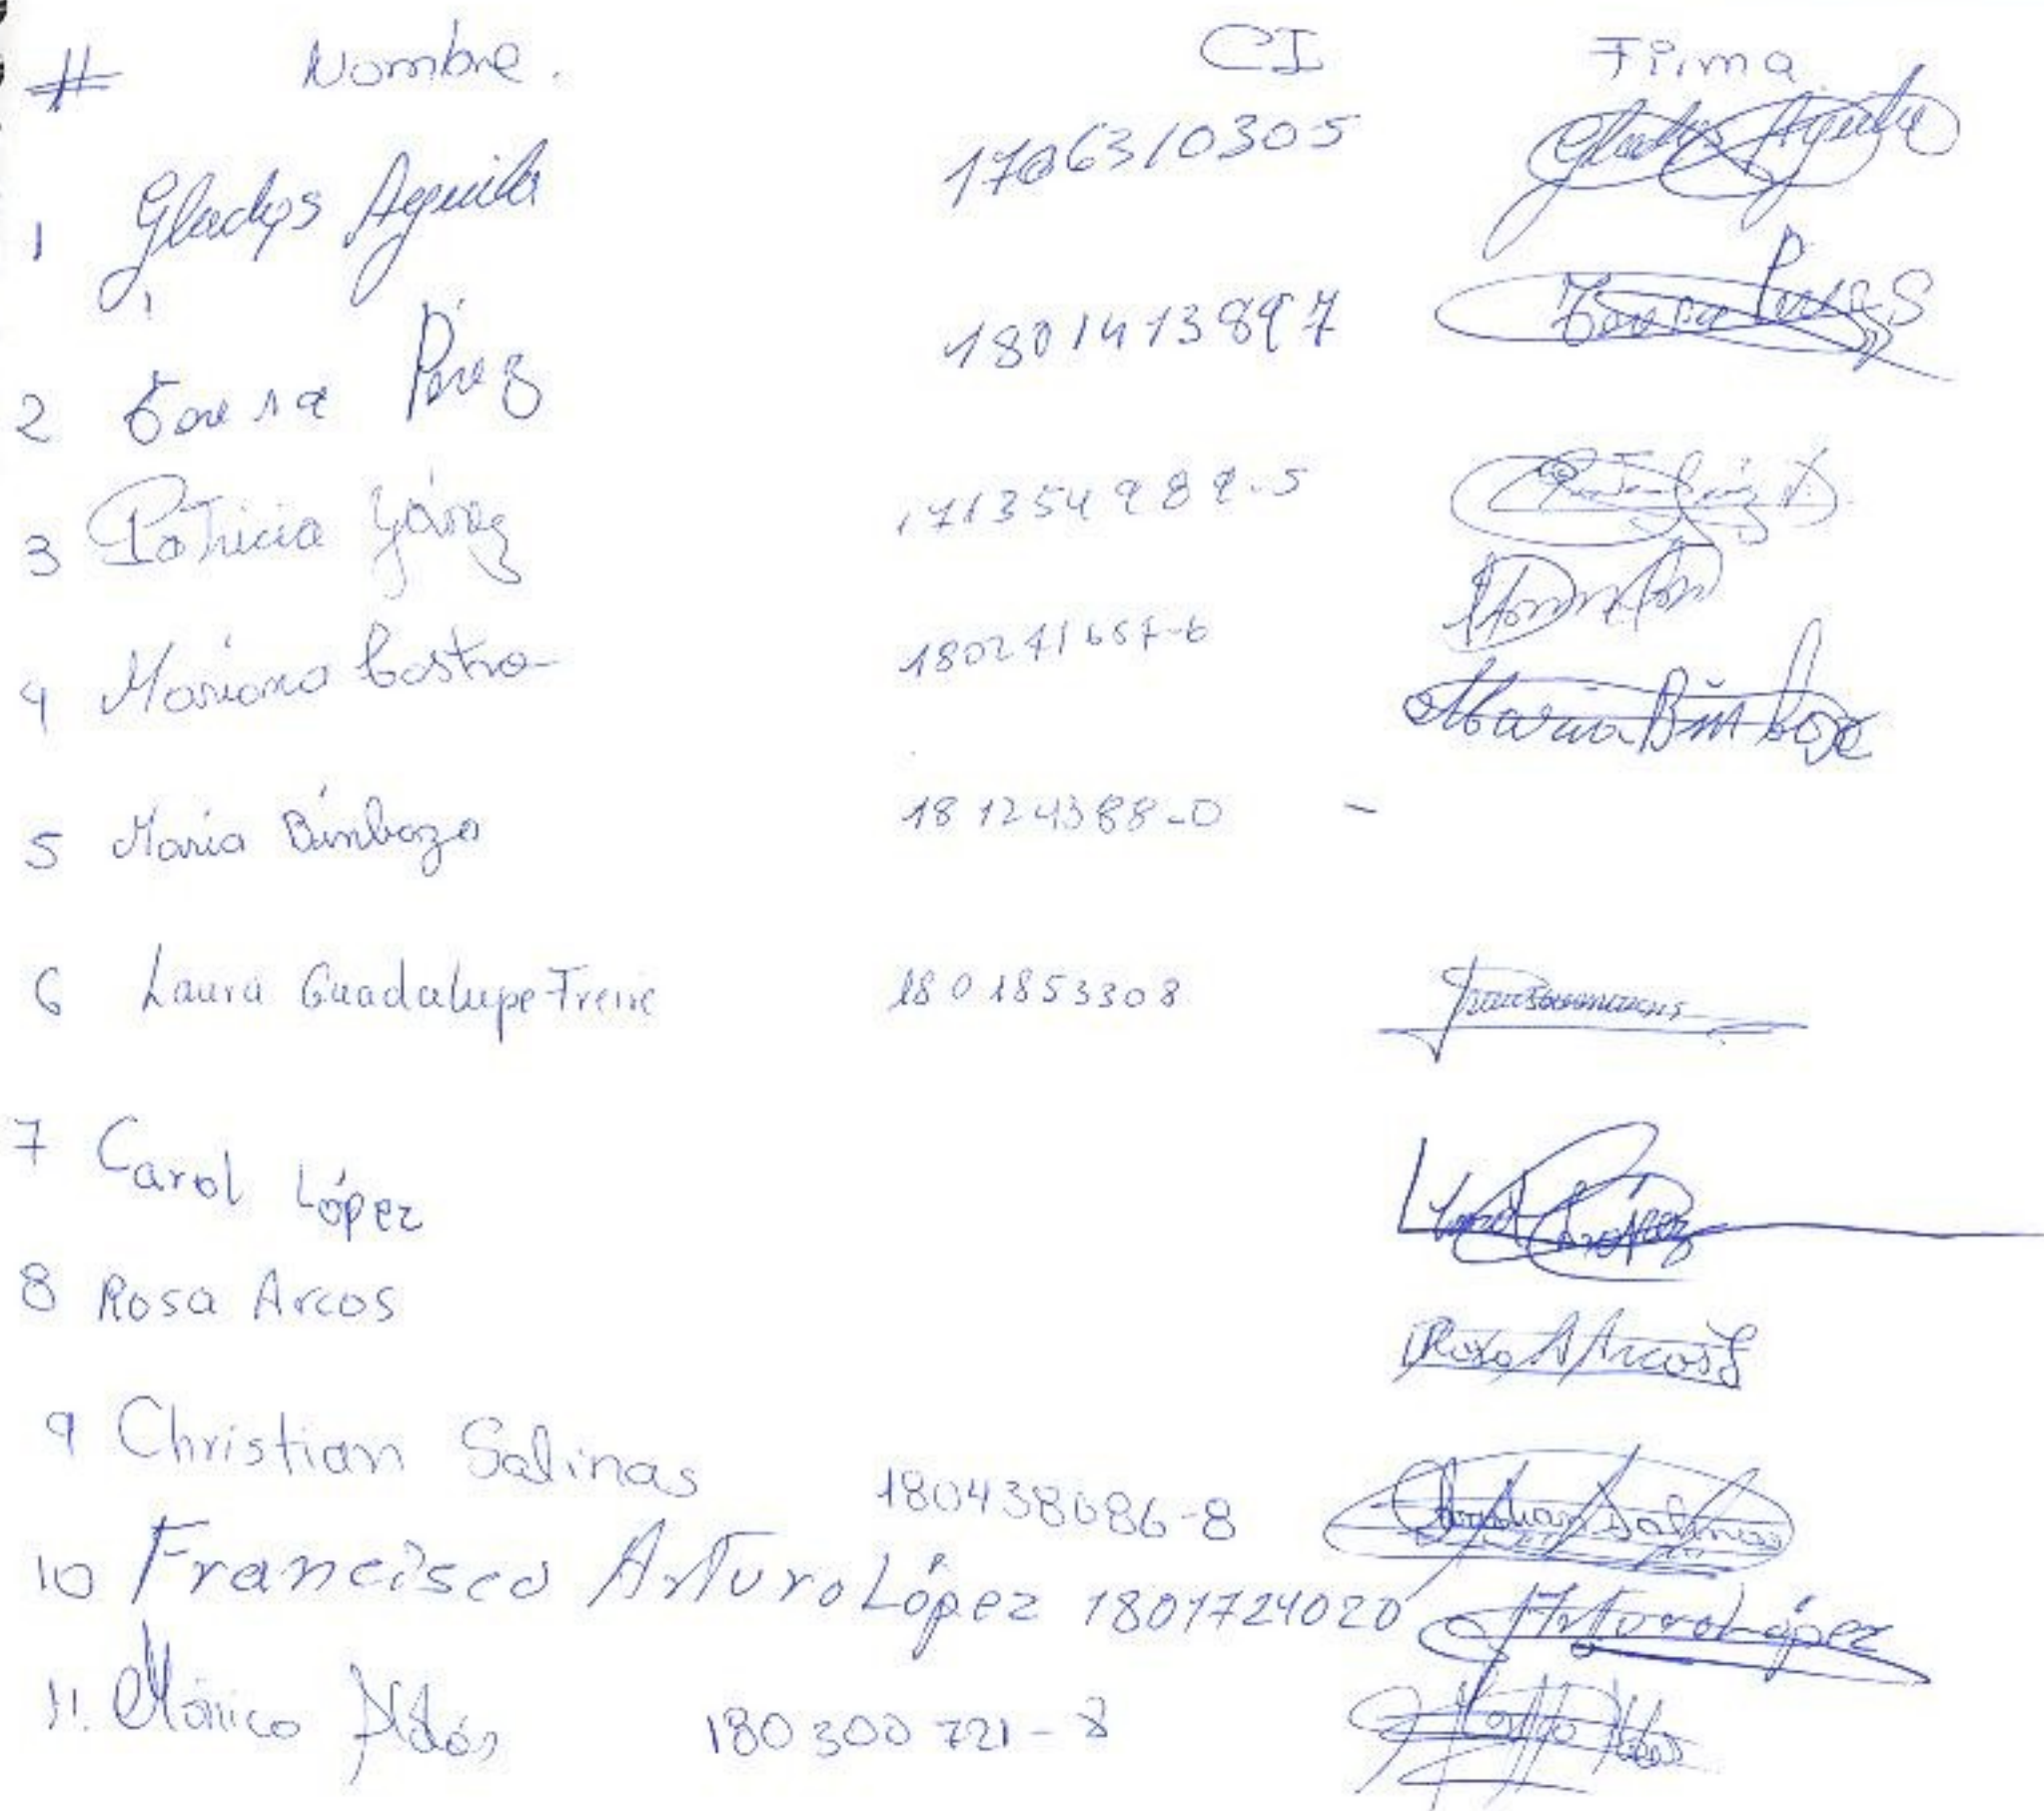 # Nombre. CI Firma
1 Gladys Aguilar 1706310305 Gladys Aguila
2 Teresa Pérez 1801413897 Teresa Pérez
3 Patricia Yánez 171354989-5
4 Mariana Castro 180271657-6
5 María Bimboza 18124388-0 - Maria Bimboza
6 Laura Guadalupe Freire 1801853308
7 Carol López López
8 Rosa Arcos Rosa A Arcos S
9 Christian Salinas 180438086-8 Christian Salinas
10 Francisco Arturo López 1801724020 Arturo López
11. Mónica Aldás 180300721-8